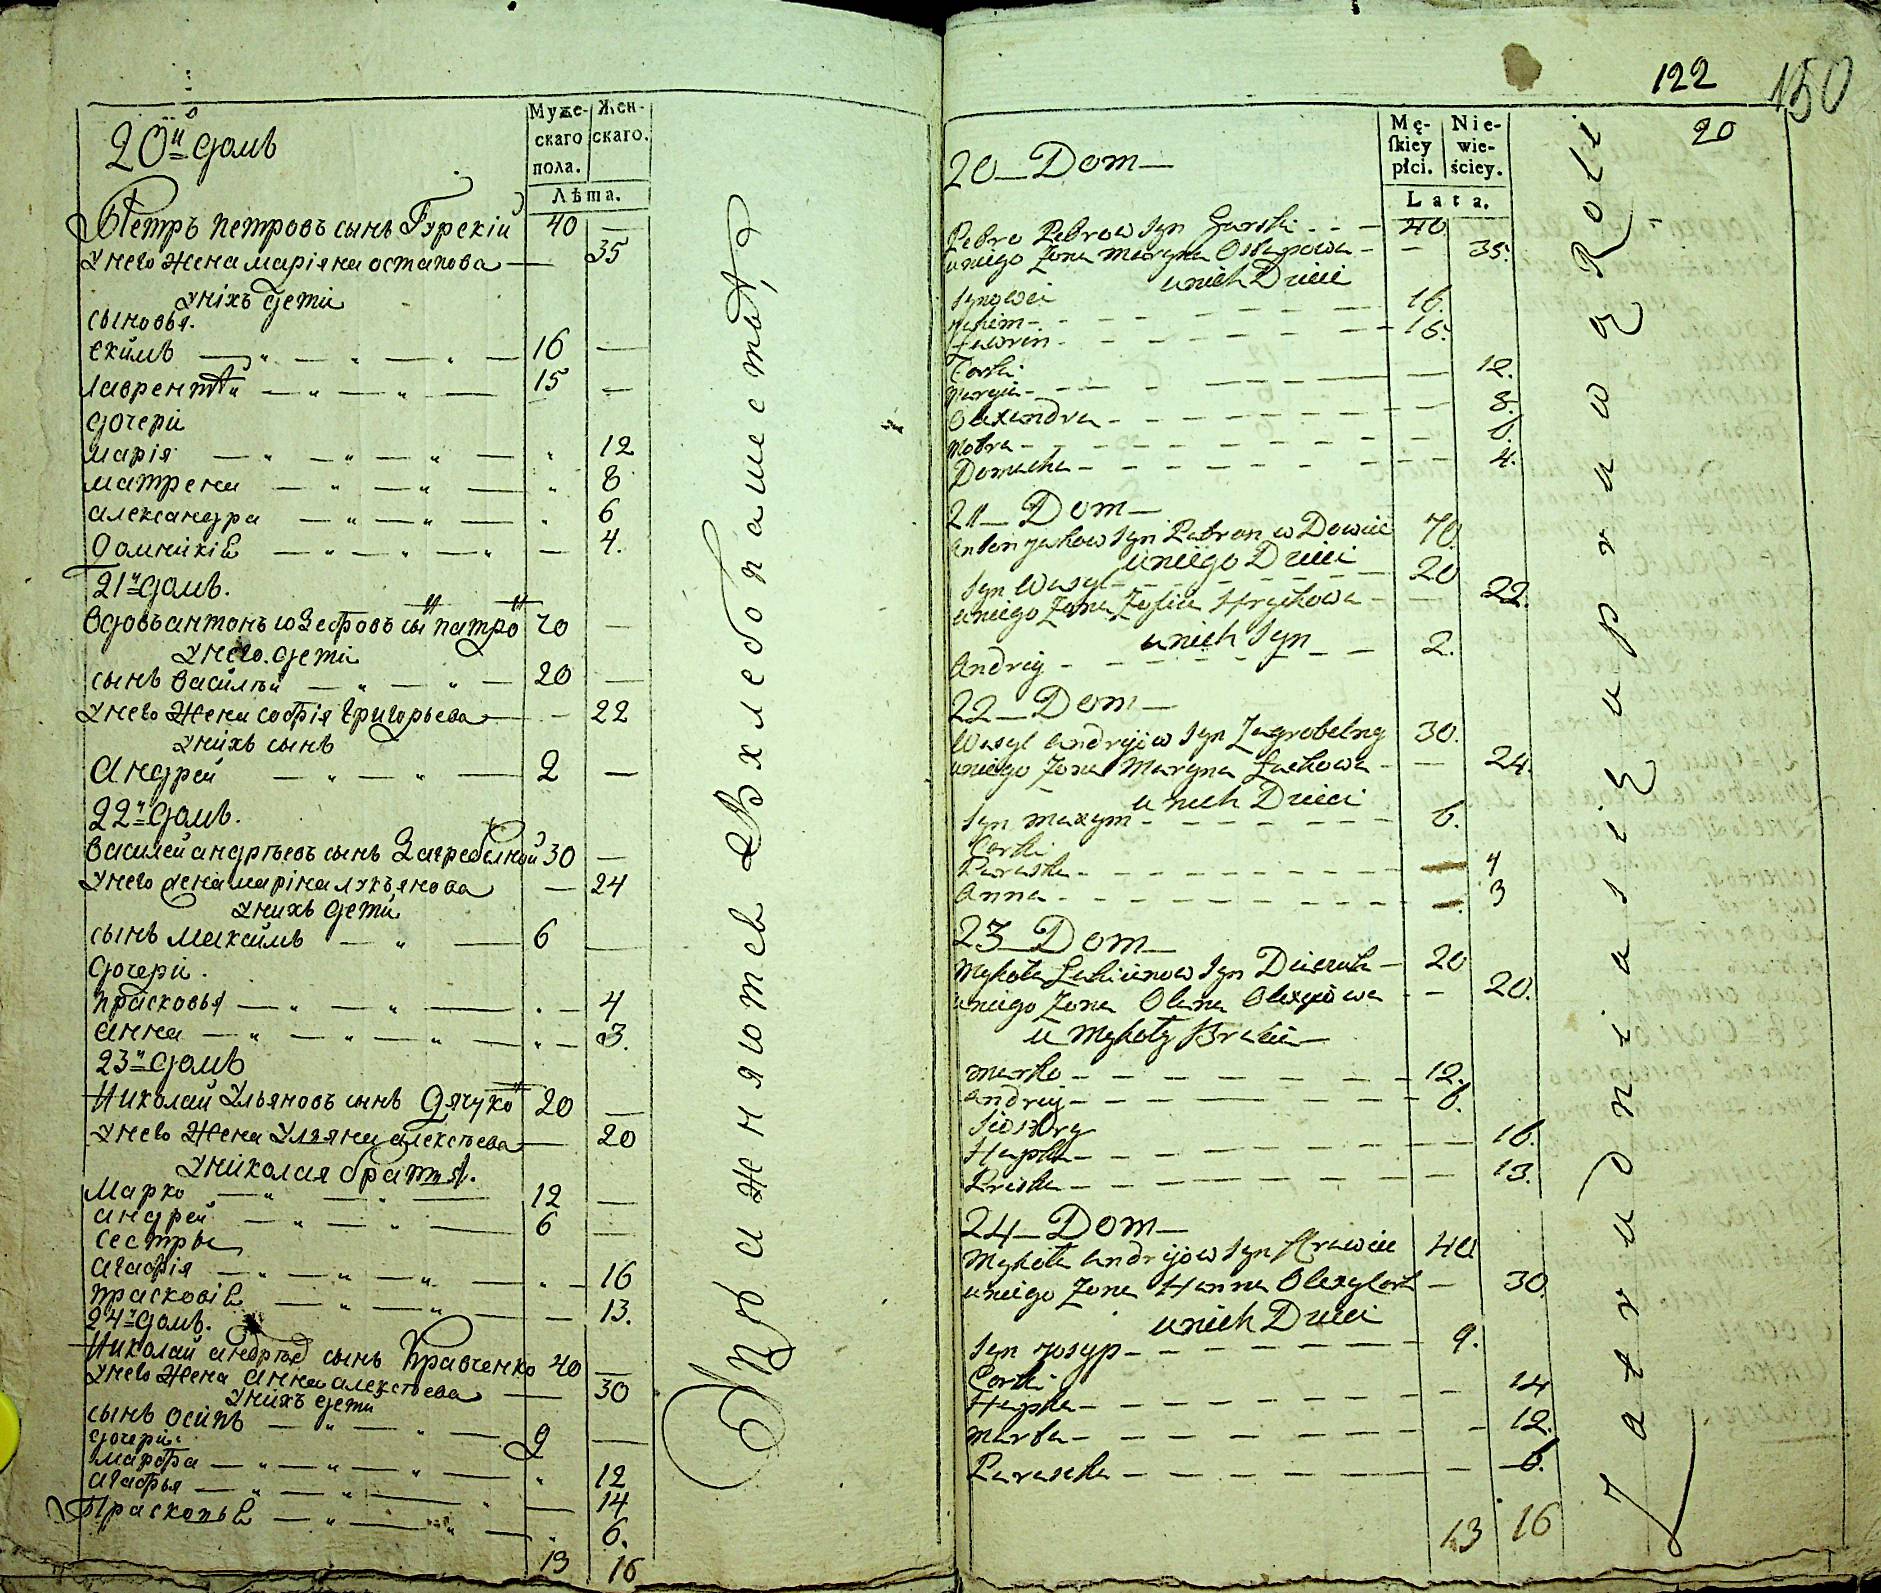 Муже-
скаго
пола.
Жен-
скаго.
Лѣта.
20й домъ
Петръ Петровъ сынъ Гурскій 40 —
У него жена Маріяна Остапова — 35
У ніхъ дети
сыновья.
Екимъ 16 —
Лаврентѣй 15 —
дочери
Марія 12
Матрена 8
Александра 6
Домникія 4.
21й домъ.
Вдовъ Антонъ Іозефовъ сы Патро 70 —
У него дети
сынъ Василѣй 20 —
У него жена Софія Григорьева — 22
У нихъ сынъ
Андрей 2 —
22й домъ.
Василей Андрѣевъ сынъ Загребелной 30 —
У него жена Марина Лукъянова — 24
У нихъ дети
сынъ Максимъ 6
дочери.
Прасковья 4
Анна 3.
23й домъ
Николай Ульяновъ сынъ Дячуко 20 —
У него жена Уляна Алексѣева — 20
У николая братья.
Марко 12 —
Андрей 6 —
сестры
Агафія 16
Прасковія 13.
24й домъ.
Николай Андрѣев сынъ Кравченко 40 —
У него жена Анна Алексѣева — 30
У нихъ дети
сынъ Осипъ 9 —
дочери:
Марфа 12
Агафья 14
Прасковья 6.
13 16
Упражняются В хлебопашестве
122
150
20
Mę-
skiey
płci.
Nie-
wie-
ściey.
Lata.
20 Dom
Petro Petrow Syn Gurski 40
u niego Zona Maryna Ostapowa 35.
u nich Dzieci
Synowei
Jakim 16.
Ławrin 15.
Corki
Marya 12.
Olexandra 8.
Motra 6.
Domacha 4.
21 Dom
Anton Jozkow Syn Patron w Dowiec 70.
u niego Dzieci
Syn Wasyl 20
u niego Zona Zofia Hryckowa 22.
u nich Syn
Andrey 2.
22 Dom
Wasyl Andryiow Syn Zagrobelny 30.
u niego Zona Maryna Łuckowa 24.
u nich Dzieci
Syn Maxym 6.
Corki
Paraska 4
Anna 3
23 Dom
Mykoła Syn 20
u niego Zona Olana Olexyiowa 20.
u Mykoły Bracia
Marko 12.
Andrey 6.
Siostry
Hapka 16.
Priska 13.
24 Dom
Mykoła Andryiow Syn Krawiec 40
u niego Zona Hanna 30.
u nich Dzieci
Syn Josyp 9.
Corki
Hapka 14
Marta 12.
Paraska 6.
13 16
Zatrudniaią się uprawą Roli